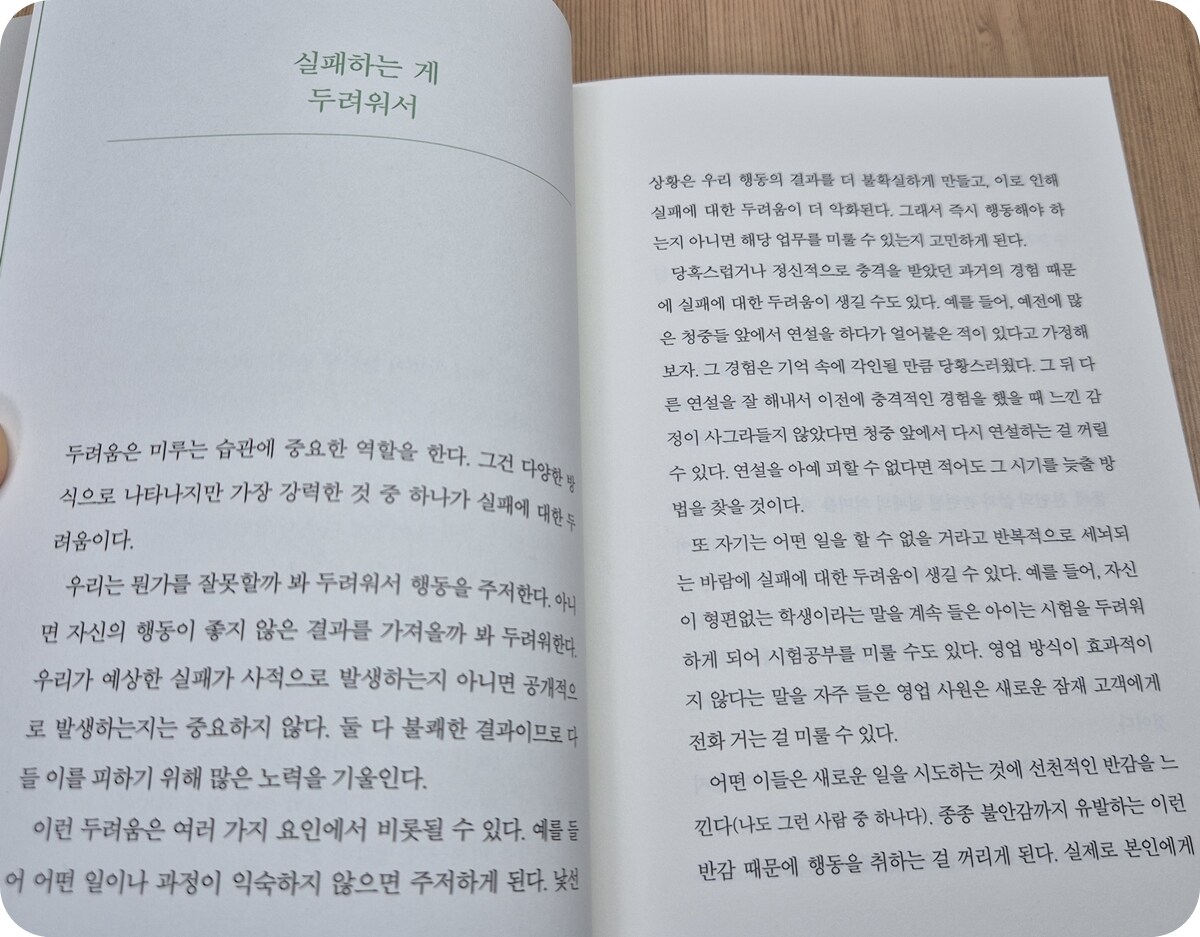 실패하는 게
두려워서
두려움은 미루는 습관에 중요한 역할을 한다. 그건 다양한 방
식으로 나타나지만 가장 강력한 것 중 하나가 실패에 대한 두
려움이다.
우리는 뭔가를 잘못할까 봐 두려워서 행동을 주저한다. 아니
면 자신의 행동이 좋지 않은 결과를 가져올까 봐 두려워한다.
우리가 예상한 실패가 사적으로 발생하는지 아니면 공개적으
로 발생하는지는 중요하지 않다. 둘 다 불쾌한 결과이므로 다
들 이를 피하기 위해 많은 노력을 기울인다.
이런 두려움은 여러 가지 요인에서 비롯될 수 있다. 예를 들
어 어떤 일이나 과정이 익숙하지 않으면 주저하게 된다. 낯선
상황은 우리 행동의 결과를 더 불확실하게 만들고, 이로 인해
실패에 대한 두려움이 더 악화된다. 그래서 즉시 행동해야 하
는지 아니면 해당 업무를 미룰 수 있는지 고민하게 된다.
당혹스럽거나 정신적으로 충격을 받았던 과거의 경험 때문
에 실패에 대한 두려움이 생길 수도 있다. 예를 들어, 예전에 많
은 청중들 앞에서 연설을 하다가 얼어붙은 적이 있다고 가정해
보자. 그 경험은 기억 속에 각인될 만큼 당황스러웠다. 그 뒤 다
른 연설을 잘 해내서 이전에 충격적인 경험을 했을 때 느낀 감
정이 사그라들지 않았다면 청중 앞에서 다시 연설하는 걸 꺼릴
수 있다. 연설을 아예 피할 수 없다면 적어도 그 시기를 늦출 방
법을 찾을 것이다.
또 자기는 어떤 일을 할 수 없을 거라고 반복적으로 세뇌되
는 바람에 실패에 대한 두려움이 생길 수 있다. 예를 들어, 자신
이 형편없는 학생이라는 말을 계속 들은 아이는 시험을 두려워
하게 되어 시험공부를 미룰 수도 있다. 영업 방식이 효과적이
지 않다는 말을 자주 들은 영업 사원은 새로운 잠재 고객에게
전화 거는 걸 미룰 수 있다.
어떤 이들은 새로운 일을 시도하는 것에 선천적인 반감을 느
낀다(나도 그런 사람 중 하나다). 종종 불안감까지 유발하는 이런
반감 때문에 행동을 취하는 걸 꺼리게 된다. 실제로 본인에게